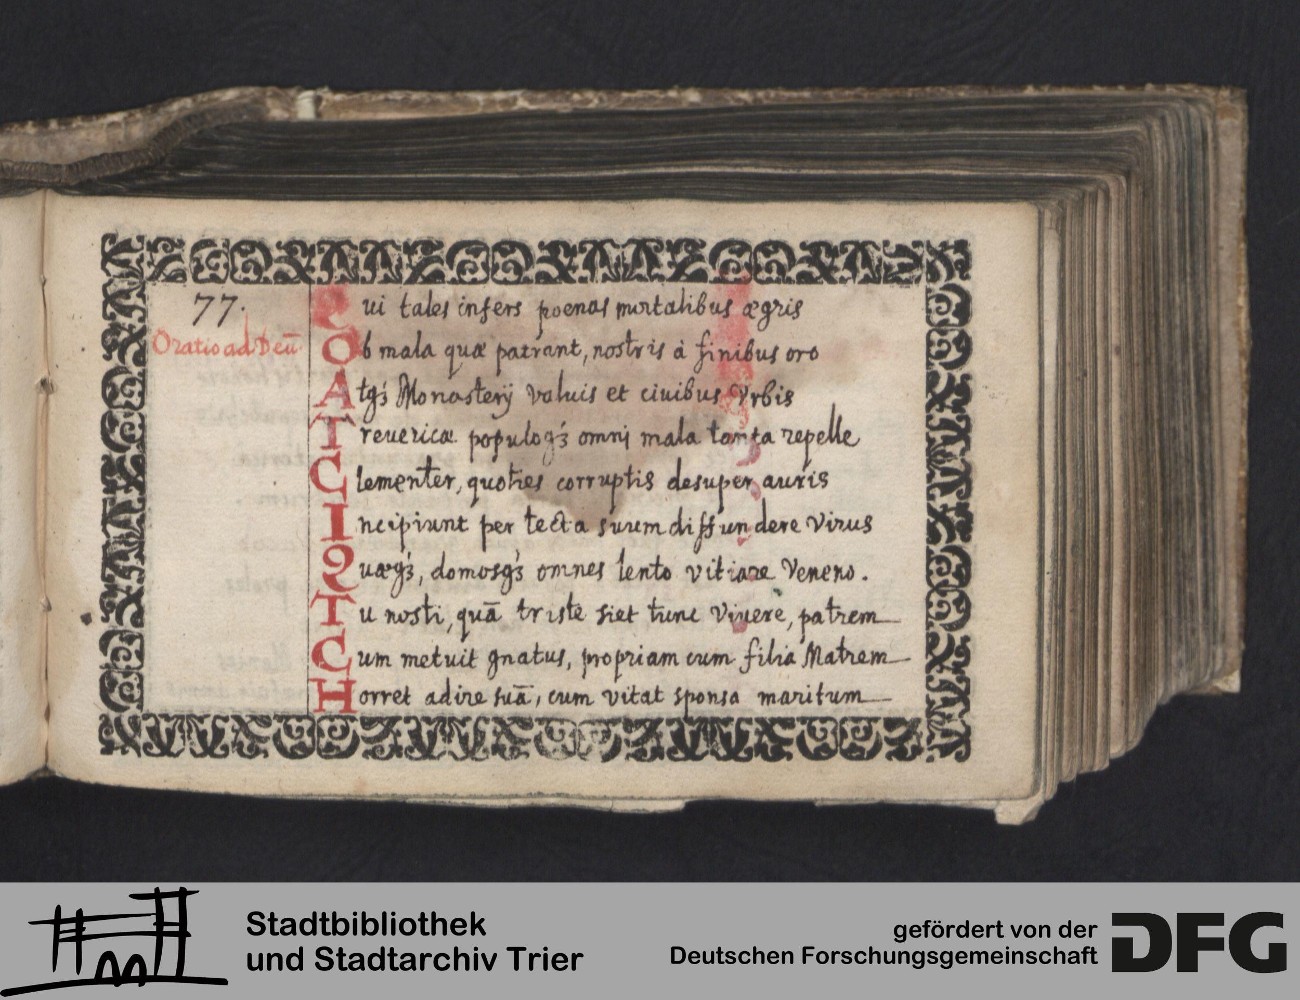 77.
Oratio ad Deū
Qui tales infers poenas mortalibus ægris
Ob mala quæ patrant, nostris à finibus oro
Atq́ꝫ Monasterij valuis et ciuibus Vrbis
Treuericæ populoq́ꝫ omni mala tanta repelle
Clementer, quoties corruptis desuper auris
Incipiunt per tecta suum diffundere virus
Quæq́ꝫ, domosq́ꝫ omnes lento vitiare veneno.
Tu nosti, quā triste siet tunc viuere, patrem
Cum metuit gnatus, propriam cum filia Matrem
Horret adire suā, cum vitat sponsa maritum
Stadtbibliothek
und Stadtarchiv Trier
gefördert von der
Deutschen Forschungsgemeinschaft
DFG